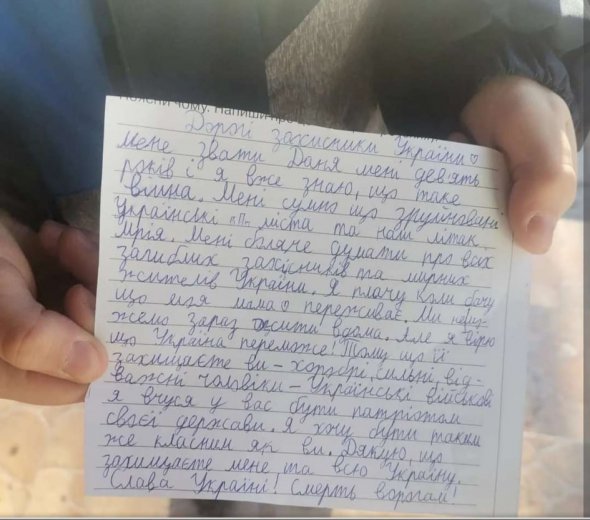 поясни чому. Напиши про
Дорогі захисники України♡
мене звати Даня мені дев'ять
років і я вже знаю, що таке
війна. Мені сумно що зруйновані
Українські міста та наш літак
Мрія. Мені боляче думати про всіх
загиблих захісників та мирних
жителів України. Я плачу коли бачу
що моя мама♡ переживає. Ми не
жемо зараз жити вдома. Але я вірю
що Україна переможе! Тому що її
захищаєте ви – хоробрі, сильні, від-
важні чоловіки – Українські військові
я вчуся у вас бути патріотом
своєї держави. Я хочу бути таким
же класним як ви. Дякую, що
захищаєте мене та всю Україну.
Слава Україні! Смерть ворогам!